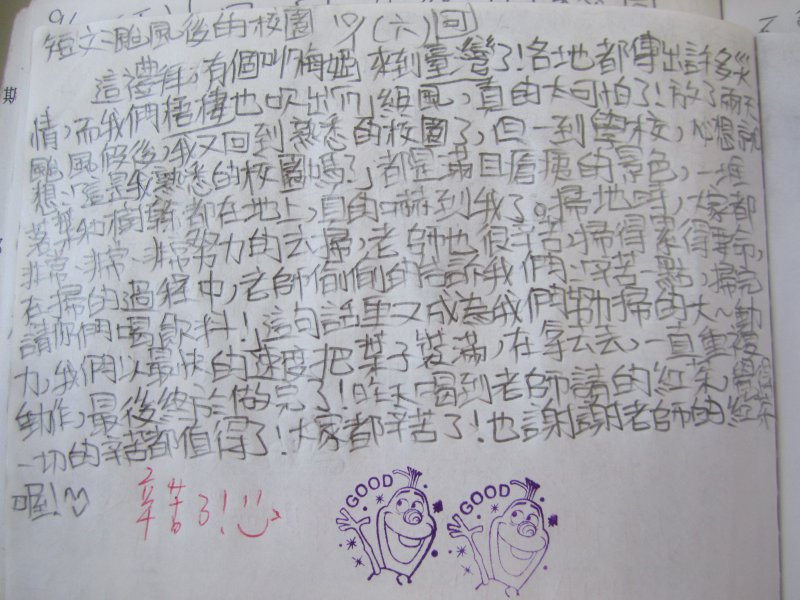 短文:颱風後的校園 10/1(六)回
這禮拜,有個叫「梅姬」來到臺灣了!各地都傳出許多災
情,而我們梧棲也吹出17級風,真的太可怕了!放了兩天
颱風假後,我又回到熟悉的校園了,但一到學校,心想就
想:「這是我熟悉的校園嗎?」都是滿目瘡痍的景色,一堆
落葉和樹幹都在地上,真的嚇到我了。掃地時,大家都
非常、非常、非常努力的去掃,老師也很辛苦,掃得累得要命,
在掃的過程中,老師偷偷的告訴我們:「辛苦一點,掃完
請你們喝飲料!」這句話里又成為我們努力掃的大~動
力,我們以最快的速度把葉子裝滿,在拿去丟,一直重複
動作,最後終於做完了!昨天喝到老師請的紅茶,覺得
一切的辛苦都值得了!大家都辛苦了!也謝謝老師的紅茶
喔!
辛苦了!
GOOD GOOD
期